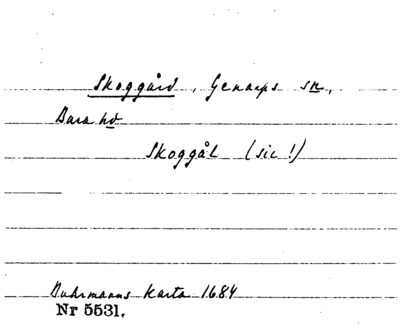 Skoggård, Genarps sn,
Bara hd
Skoggål (sic!)
Buhrmanns karta 1684
Nr 5531.